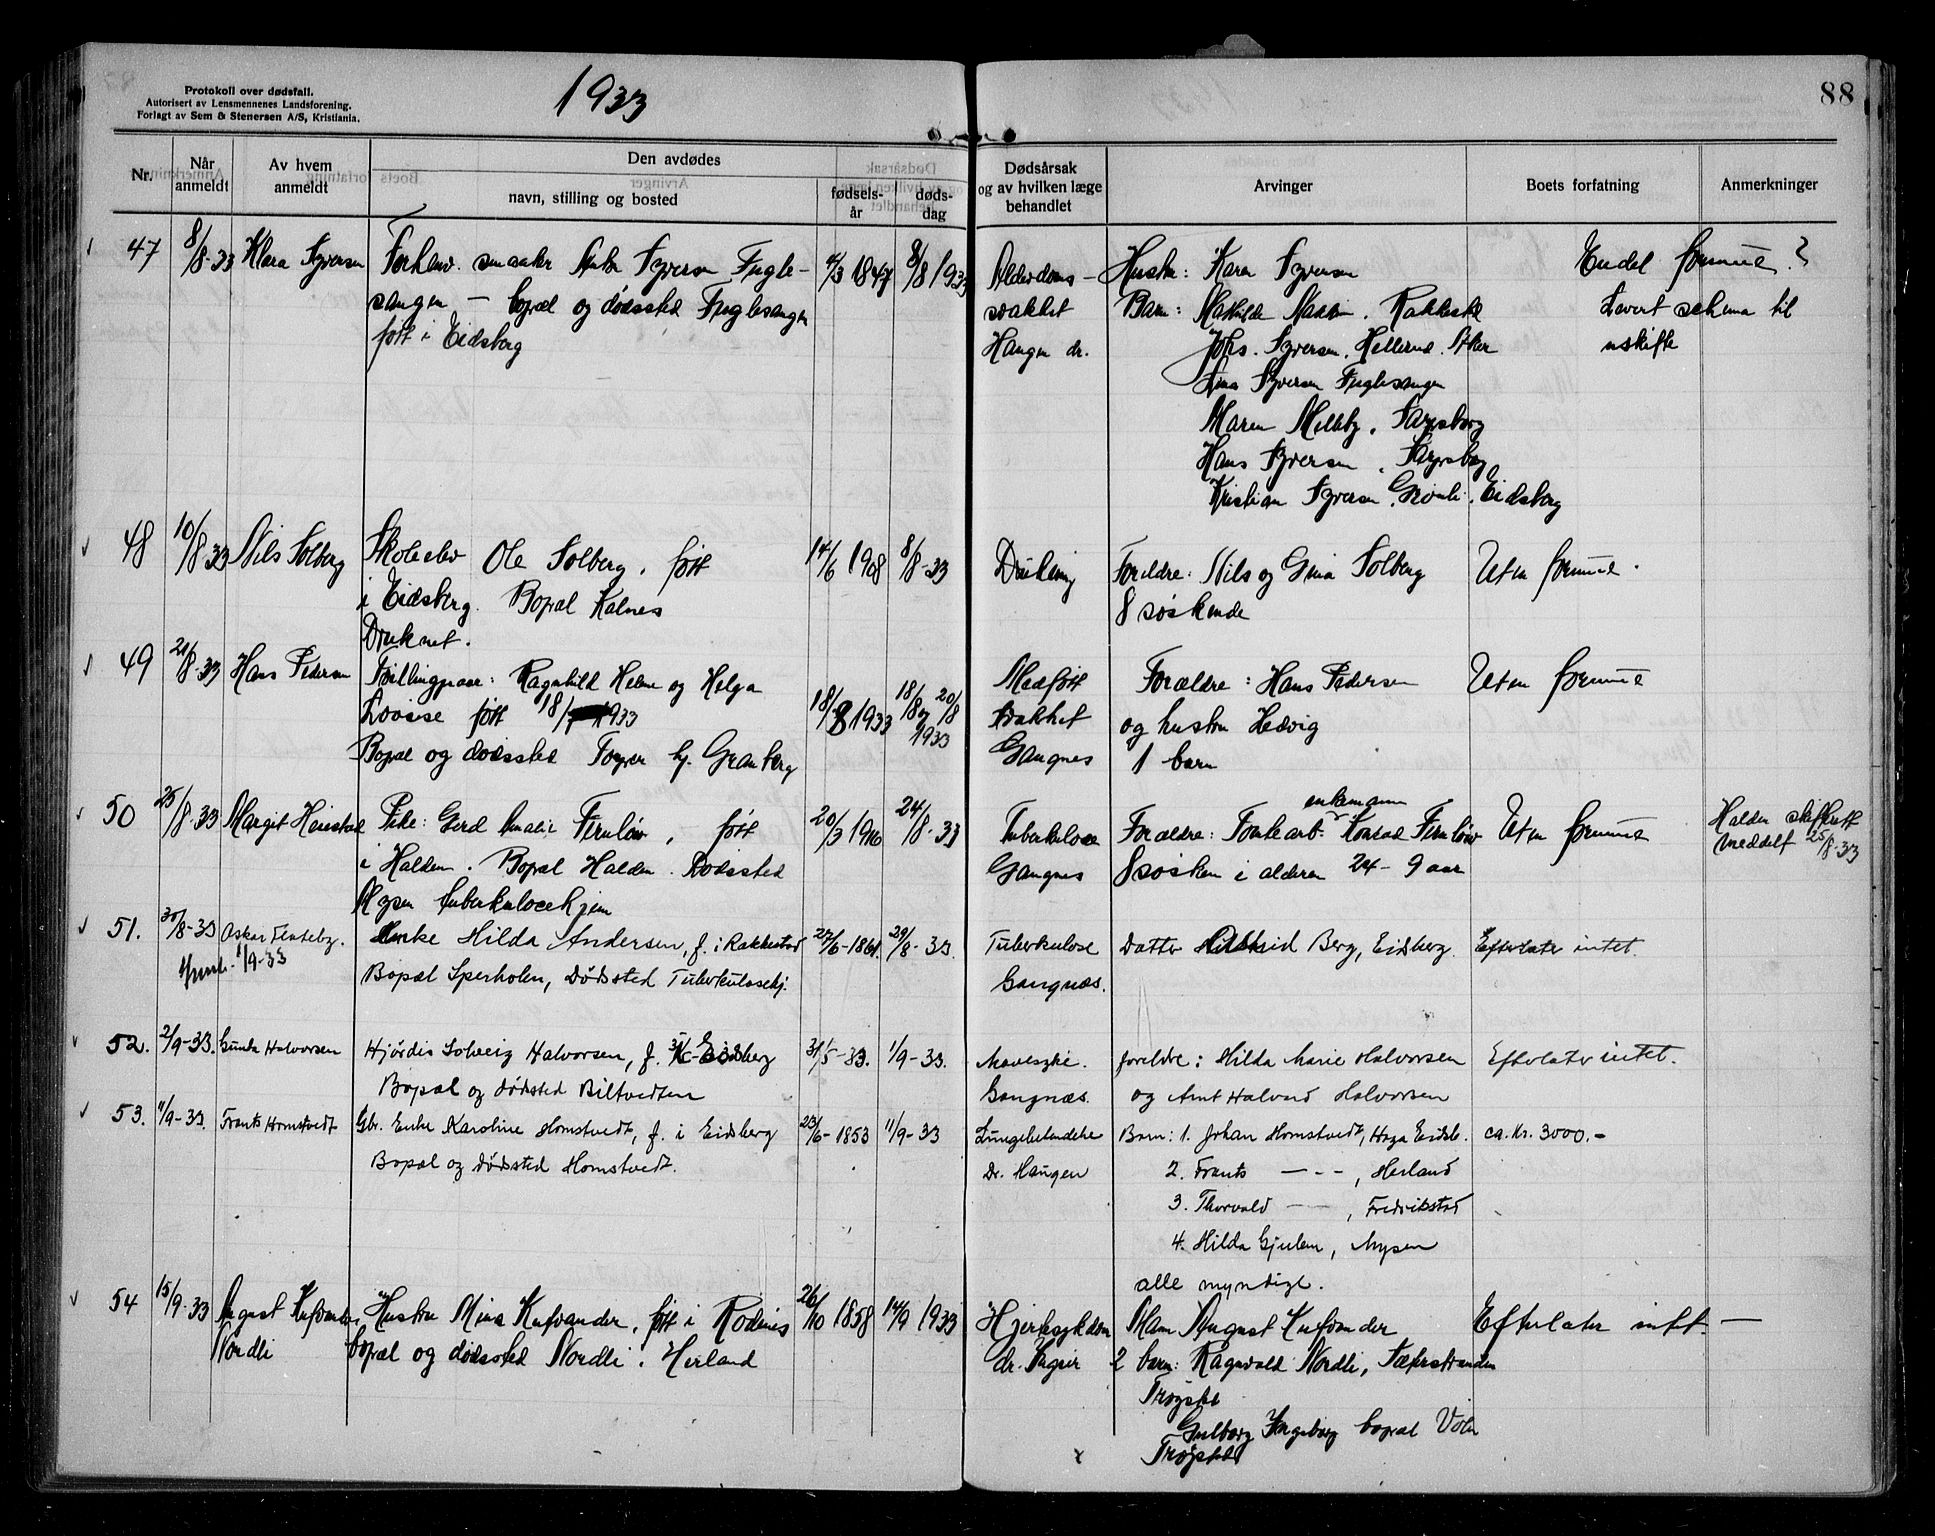 Protokoll over dødsfall.
Autorisert av Lensmennenes Landsforening.
Forlagt av Sem & Stenersen A/S, Kristiania.
1933
88
Nr.
Når anmeldt
Av hvem anmeldt
Den avdødes
navn, stilling og bosted
fødsels-år
døds-dag
Dødsårsak og av hvilken læge behandlet
Arvinger
Boets forfatning
Anmerkninger
47 8/8-33 Klara Syversen
Forhenv. Syversen Fugle-
sangen – bopæl og dødssted Fuglesangen
født i Eidsberg
/3 1847 8/8 1933
Alderdoms-
svakhet
Haugen dr.
Hustru: Karen Syversen
Barn: Mathilde Rakkestad
Johs. Syversen. Hellerud. Aker
Lina Syversen Fuglesangen
Maren Melleby. Sarpsborg
Hans Syversen. Sarpsborg
Kristian Syversen. Eidsberg
Endel formue?
Levert schema til
uskifte
48 10/8-33 Nils Solberg
Skoleelev Ole Solberg. født
i Eidsberg. Bopæl Kalnes
Druknet.
14/6 1908 8/8-33
Drukning
Forældre: Nils og Gina Solberg
8 søskende
Uten formue.
49 21/8-33 Hans Pedersen
Tvillingpaar: Ragnhild Helene og Helga
Lovise født 18/ 1933
Bopæl og dødssted Torper hj. Granberg
18/8 1933 18/8 og 20/8 1933
Medfött
svakhet
Gangnes
Forældre: Hans Pedersen
og hustru Hedvig
1 barn
Uten formue
50 25/8-33 Margit Harestad
Pike: Gerd Amalie Fernløv, født
i Halden. Bopæl Halden. Dødssted
Mysen tuberkulosehjem
20/3 1916 24/8-33
Tuberkulose
Gangnes
enkemann
Forældre: Konrad Fernløv
8 søsken i alderen 24 - 9 aar
Uten formue
Halden skifterett
meddelt 25/8-33
51. 30/8-33 Oskar Flateby.
1/9-33
Enke Hilda Andersen, f. i Rakkestad
Bopæl Sperholen, Dødsted Tuberkulosehj.
27/6-1861. 29/8-33.
Tuberkulose
Gangnæs.
Datter Astrid Berg, Eidsberg.
Efterlater intet.
52. 2/9-33. Gunda Halvorsen
Hjørdis Solveig Halvorsen, f. Eidsberg
Bopæl og dødsted Biltvedten
31/5-33. 1/9-33.
Mavesyke.
Gangnæs.
foreldre: Hilda Marie Halvorsen
og Arnt Halvard Halvorsen
Efterlater intet.
53. 11/9-33. Frants Homstvedt
Gbr. Enke Karoline Homstvedt, f. i Eidsberg
Bopæl og dødsted Homstvedt.
23/6-1853 11/9-33
Lungebetendelse
Dr. Haugen
Barn: 1. Johan Homstvedt, Haga Eidsb.
2. Frants —— - - , Herland
3. Thorvald —— - , Fredrikstad
4. Hilda Gjulem, Mysen
alle myndige.
ca. Kr. 3000.-
54 15/9-33 August Kufvander,
Nordli
Hustru Mina Kufvander, født i Rødnes
bopæl og dødssted Nordli. Herland
26/10 1858 14/9 1933
Hjertesykdom
dr.
Mann August Kufvander
2 barn: Ragnvald Nordli, Sæterstranden
Trøgstad
Gulborg Ingeborg bopæl
Trøgstad
Efterlater intet. —